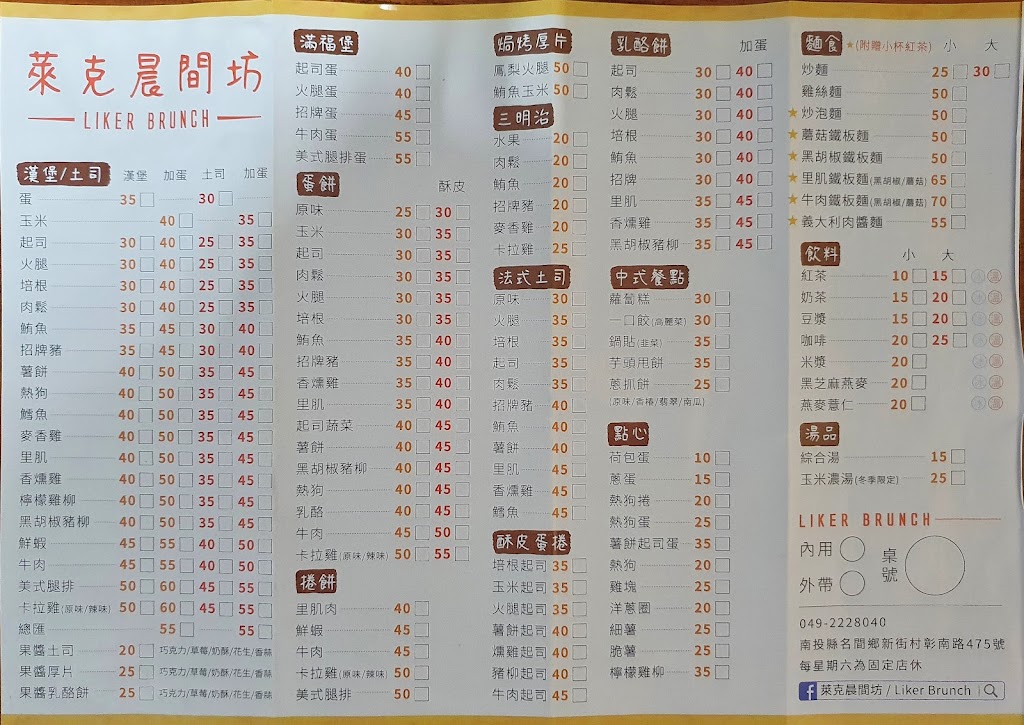 萊克晨間坊
LIKER BRUNCH
漢堡/土司 漢堡 加蛋 土司 加蛋
蛋 35 30
玉米 40 35
起司 30 40 25 35
火腿 30 40 25 35
培根 30 40 25 35
肉鬆 30 40 25 35
鮪魚 35 45 30 40
招牌豬 35 45 30 40
薯餅 40 50 35 45
熱狗 40 50 35 45
鱈魚 40 50 35 45
麥香雞 40 50 35 45
里肌 40 50 35 45
香燻雞 40 50 35 45
檸檬雞柳 40 50 35 45
黑胡椒豬柳 40 50 35 45
鮮蝦 45 55 40 50
牛肉 45 55 40 50
美式腿排 50 60 45 55
卡拉雞(原味/辣味) 50 60 45 55
總匯 55 55
果醬土司 20 巧克力/草莓/奶酥/花生/香蒜
果醬厚片 25 巧克力/草莓/奶酥/花生/香蒜
果醬乳酪餅 25 巧克力/草莓/奶酥/花生/香蒜
滿福堡
起司蛋 40
火腿蛋 40
招牌蛋 45
牛肉蛋 55
美式腿排蛋 55
蛋餅 酥皮
原味 25 30
玉米 30 35
起司 30 35
肉鬆 30 35
火腿 30 35
培根 30 35
鮪魚 35 40
招牌豬 35 40
香燻雞 35 40
里肌 35 40
起司蔬菜 40 45
薯餅 40 45
黑胡椒豬柳 40 45
熱狗 40 45
乳酪 40 45
牛肉 45 50
卡拉雞(原味/辣味) 50 55
捲餅
里肌肉 40
鮮蝦 45
牛肉 45
卡拉雞(原味/辣味) 50
美式腿排 50
焗烤厚片
鳳梨火腿 50
鮪魚玉米 50
三明治
水果 20
肉鬆 20
鮪魚 20
招牌豬 20
麥香雞 20
卡拉雞 25
法式土司
原味 30
火腿 35
培根 35
起司 35
肉鬆 35
招牌豬 40
鮪魚 40
薯餅 40
里肌 45
香燻雞 45
鱈魚 45
酥皮蛋捲
培根起司 35
玉米起司 35
火腿起司 35
薯餅起司 40
燻雞起司 40
豬柳起司 40
牛肉起司 45
乳酪餅 加蛋
起司 30 40
肉鬆 30 40
火腿 30 40
培根 30 40
鮪魚 30 40
招牌 30 40
里肌 35 45
香燻雞 35 45
黑胡椒豬柳 35 45
中式餐點
蘿蔔糕 30
一口餃(高麗菜) 30
鍋貼(韭菜) 35
芋頭甩餅 30
蔥抓餅 25
(原味/香椿/翡翠/南瓜)
點心
荷包蛋 10
蔥蛋 15
熱狗捲 20
熱狗蛋 25
薯餅起司蛋 35
熱狗 20
雞塊 25
洋蔥圈 20
細薯 25
脆薯 25
檸檬雞柳 35
麵食 ★(附贈小杯紅茶) 小 大
炒麵 25 30
雞絲麵 50
★炒泡麵 50
★蘑菇鐵板麵 50
★黑胡椒鐵板麵 50
★里肌鐵板麵(黑胡椒/蘑菇) 65
★牛肉鐵板麵(黑胡椒/蘑菇) 70
★義大利肉醬麵 55
飲料 小 大
紅茶 10 15 冰 溫
奶茶 15 20 冰 溫
豆漿 15 20 冰 溫
咖啡 20 25 冰 溫
米漿 20 冰 溫
黑芝麻燕麥 20 冰 溫
燕麥薏仁 20 冰 溫
湯品
綜合湯 15
玉米濃湯(冬季限定) 25
LIKER BRUNCH
內用 桌號
外帶
049-2228040
南投縣名間鄉新街村彰南路475號
每星期六為固定店休
f 萊克晨間坊 / Liker Brunch